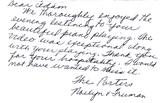 Dear Adam
We thoroughly enjoyed the
evening listening to your
beautiful piano playing. The
video was exceptional along
with your Thank you
for your hospitality. I would
not have wanted to miss it.
The Porters
Roslyn & Truman